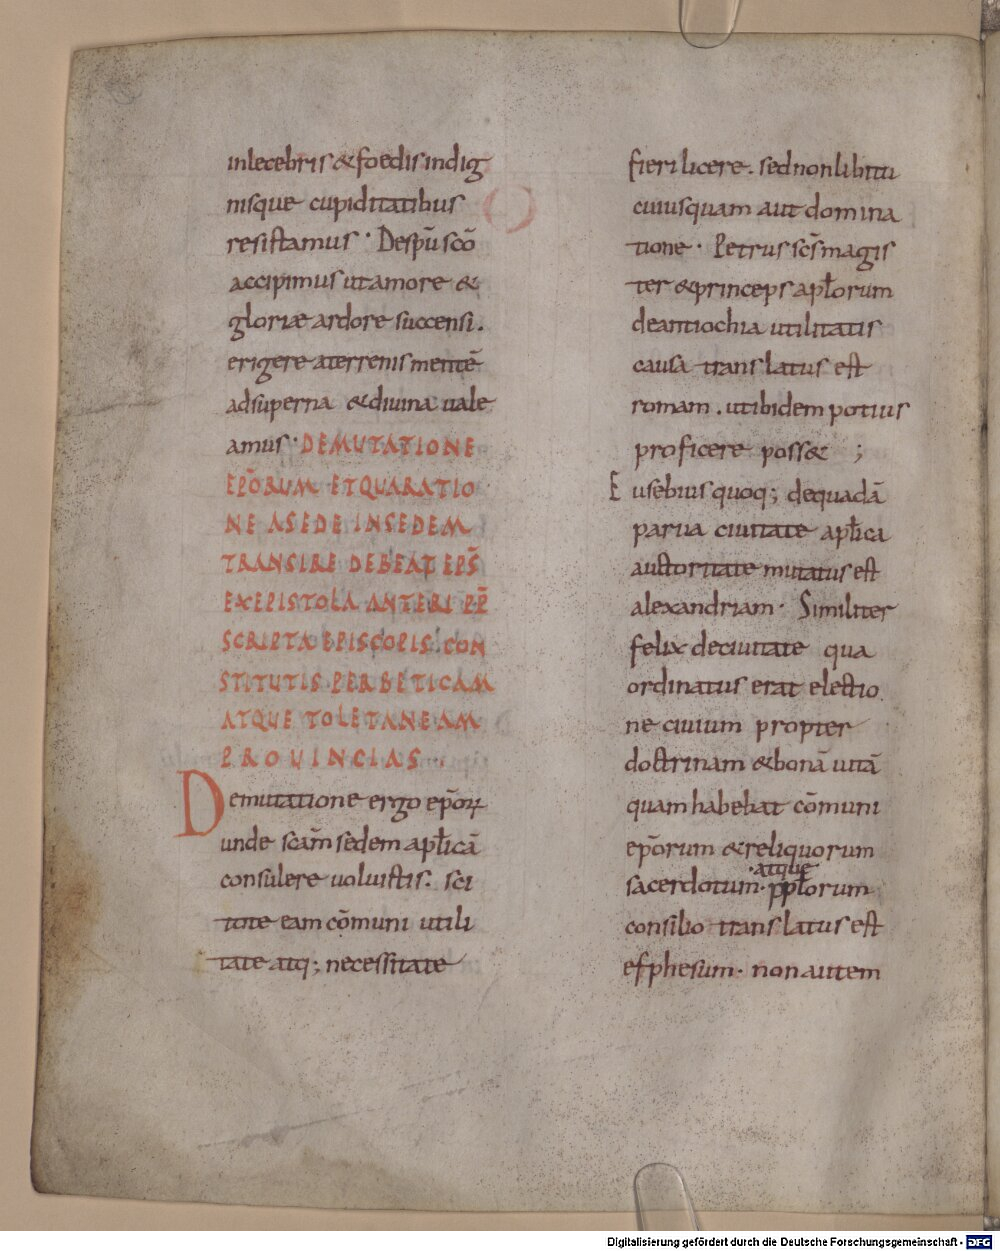 inlecebris & foedis indig
nisque cupiditatibus
resistamus · Desp̄u scō
accipimus ut amore &
gloriæ ardore succensi .
erigere a terrenis mentē
ad superna & divina uale
amus · DE MUTATIONE
EP̄ORUM ET QUA RATIO
NE A SEDE IN SEDEM
TRANSIRE DEBEAT EP̄S
EX EPISTOLA ANTERI PP̄
SCRIPTA EPISCOPIS . CON
STITUTIS PER BETICAM
ATQUE TOLETANEAM
PROUINCIAS .
De mutatione ergo ep̄oꝝ
unde sc̄am sedem apłicā
consulere uoluistis . sci
tote eam cōmuni utili
tate atq; necessitate
fieri licere . sed non libitu
cuiusquam aut domina
tione · Petrus sc̄s magis
ter & princeps apłorum
de antiochia utilitatis
causa translatus est
romam . ut ibidem potius
proficere poss& ;
Eusebius quoq; de quadā
parua ciuitate apłica
auctoritate mutatus est
alexandriam · Similiter
felix de ciuitate qua
ordinatus erat electio
ne ciuium propter
doctrinam & bonā uitā
quam habebat cōmuni
ep̄orum & reliquorum
·atque
sacerdotum · ppłorum
consilio translatus est
efphesum · non autem
Digitalisierung gefördert durch die Deutsche Forschungsgemeinschaft - DFG